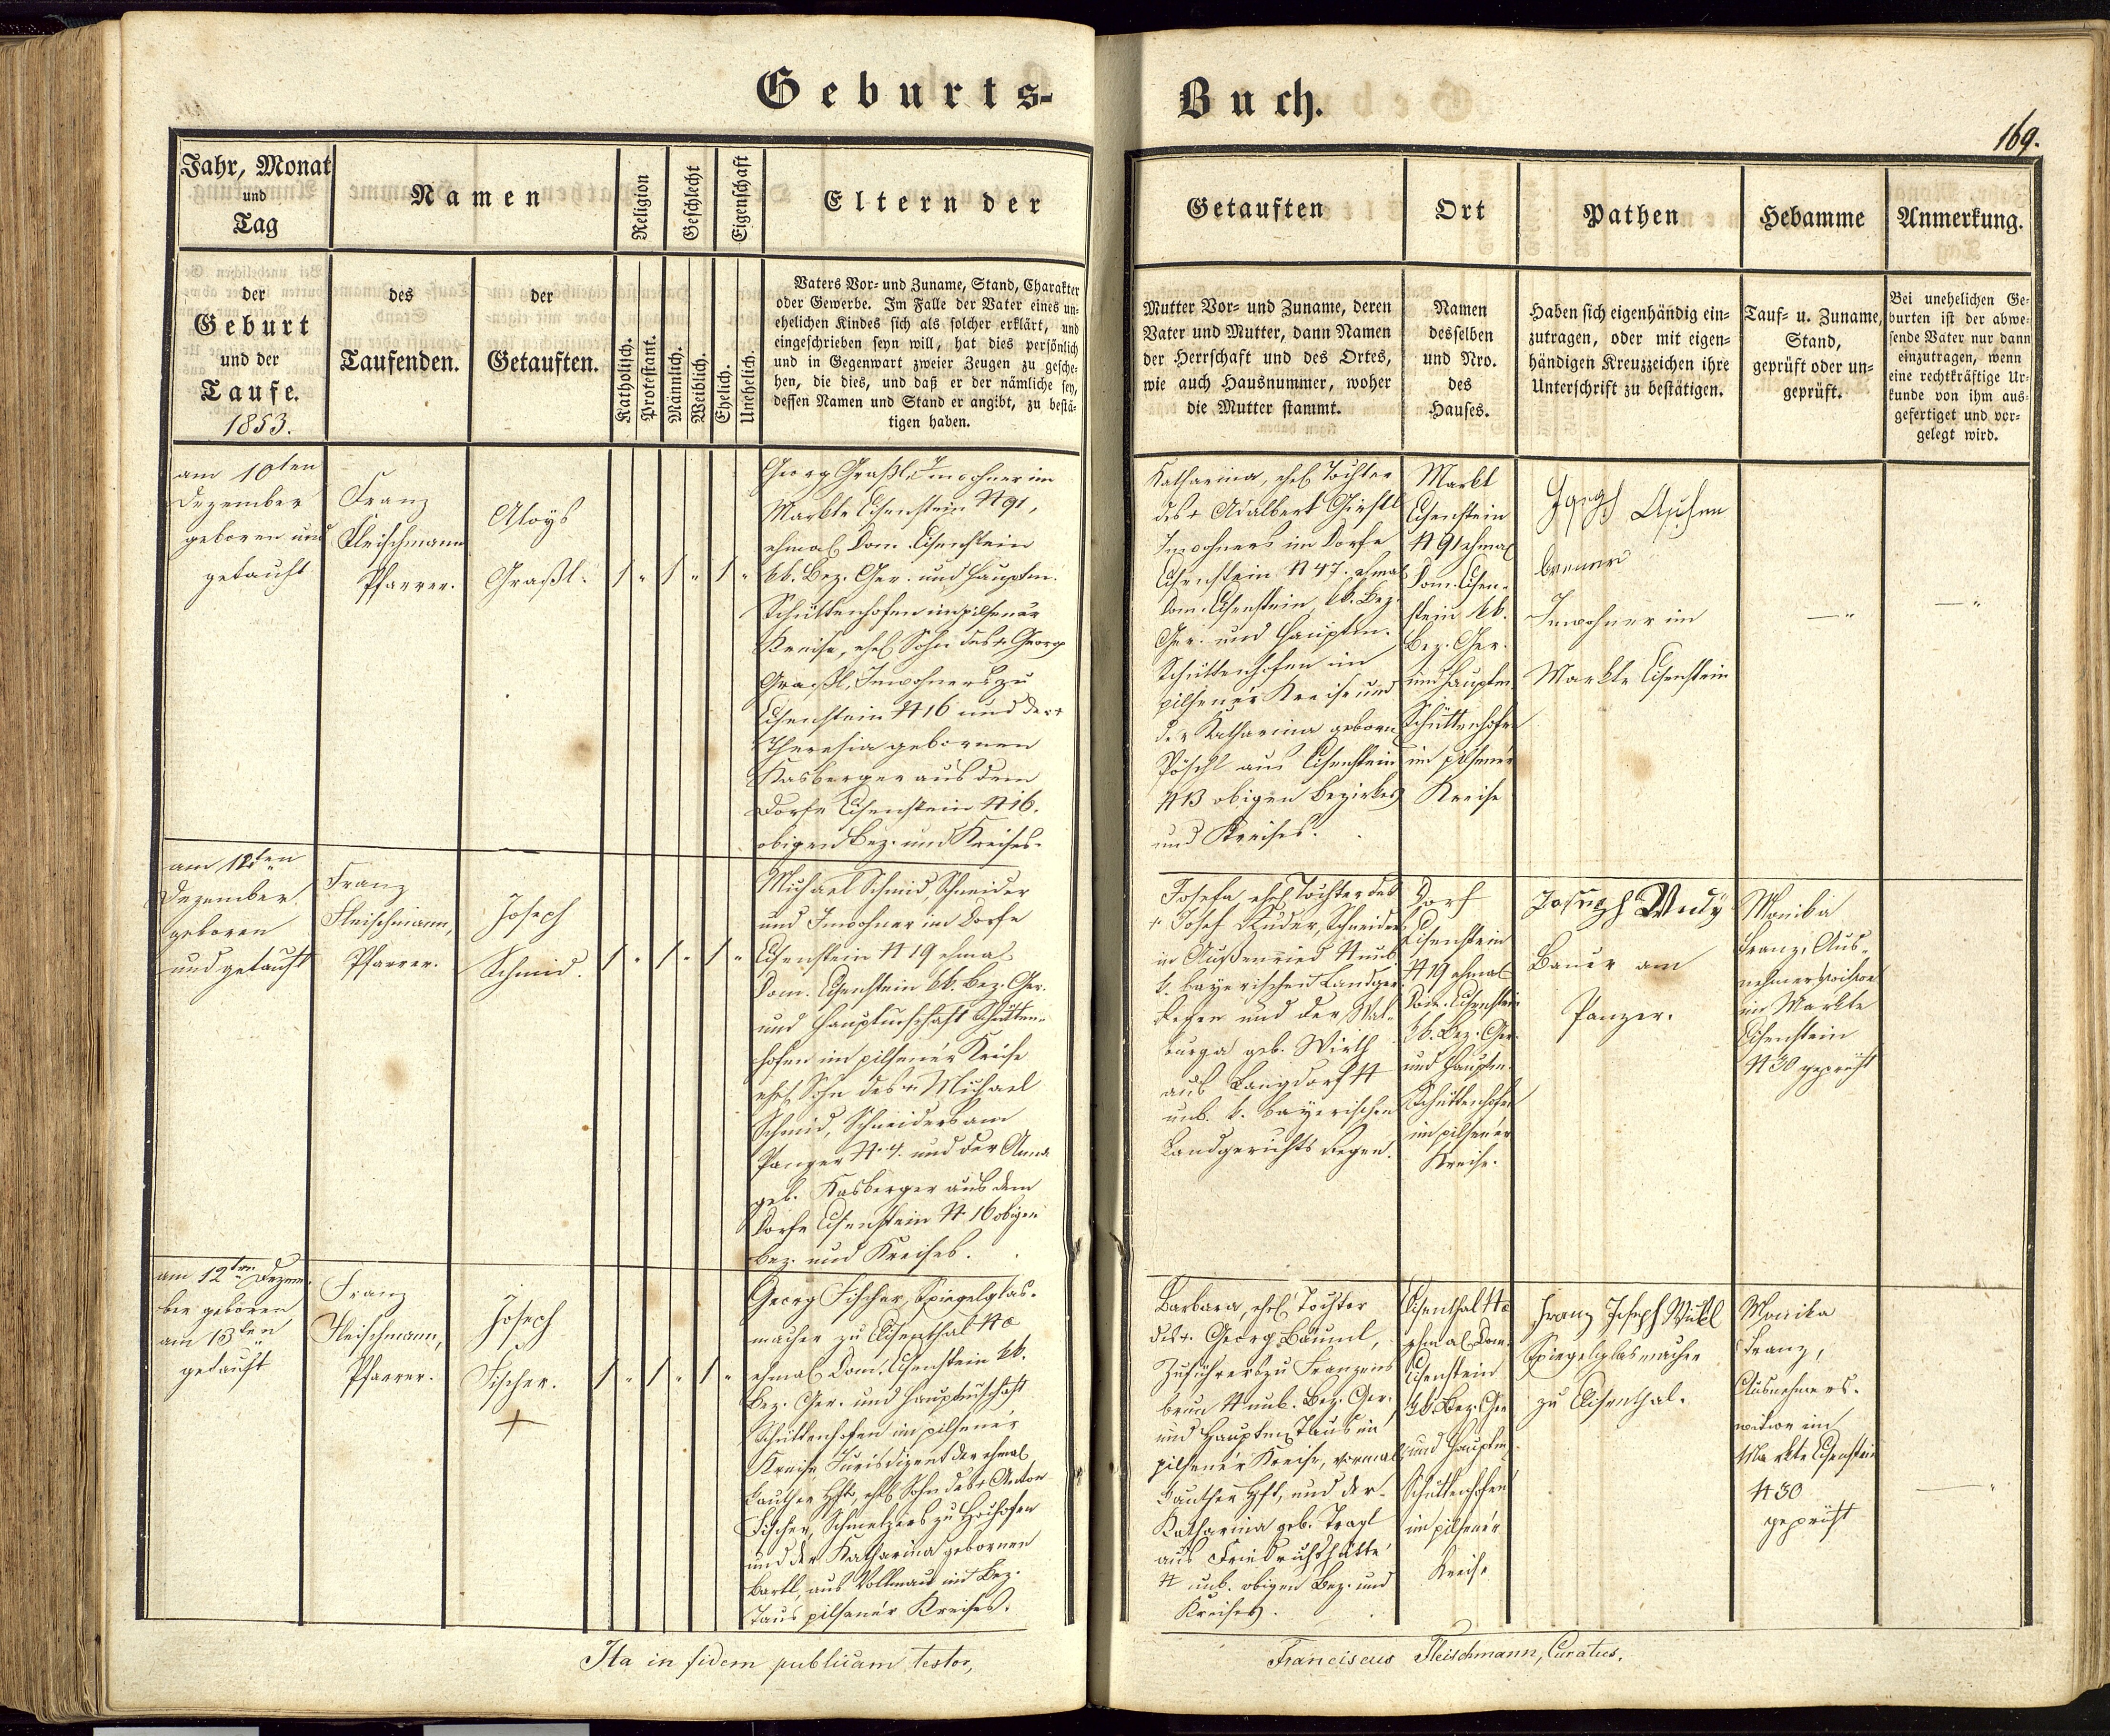 Geburts-
Buch.
169.
Jahr, Monat
und
Tag
Namen
Religion
Geschlecht
Eigenschaft
Eltern der
Getauften
Ort
Pathen
Hebamme
Anmerkung.
der
Geburt
und der
Taufe.
1853.
des
Taufenden.
der
Getauften.
Katholisch.
Protestant.
Männlich.
Weiblich.
Ehelich.
Unehelich.
Vaters Vor- und Zuname, Stand, Charakter
oder Gewerbe. Im Falle der Vater eines un-
ehelichen Kindes sich als solcher erklärt, und
eingeschrieben seyn will, hat dies persönlich
und in Gegenwart zweier Zeugen zu gesche-
hen, die dies, und daß er der nämliche sey,
dessen Namen und Stand er angibt, zu bestä-
tigen haben.
Mutter Vor- und Zuname, deren
Vater und Mutter, dann Namen
der Herrschaft und des Ortes,
wie auch Hausnummer, woher
die Mutter stammt.
Namen
desselben
und Nro.
des
Hauses.
Haben sich eigenhändig ein-
zutragen, oder mit eigen-
händigen Kreuzzeichen ihre
Unterschrift zu bestätigen.
Tauf- u. Zuname,
Stand,
geprüft oder un-
geprüft.
Bei unehelichen Ge-
burten ist der abwe-
sende Vater nur dann
einzutragen, wenn
eine rechtkräftige Ur-
kunde von ihm aus-
gefertiget und vor-
gelegt wird.
am 10ten
Dezember
geboren und
getauft
Franz
Fleischmann
Pfarrer.
Aloys
Graßl.
1 " 1 " 1 "
Georg Graßl, Inwohner im
Markte Eisenstein N 91,
ehmal Dom. Eisenstein
kk. Bez. Ger. und Hauptm.
Schüttenhofen im pilsener
Kreise, ehel Sohn des + Georg
Graßl, Inwohners zu
Eisenstein N 16 und der +
Theresia gebornen
Kasberger aus dem
Dorfe Eisenstein N 16.
obigen Bez. und Kreises.
Katharina, ehel Tochter
des + Adalbert
Inwohners im Dorfe
Eisenstein N 47. ehmal
Dom. Eisenstein, kk. Bez.
Ger. und Hauptm.
Schüttenhofen im
pilsener Kreise und
der Katharina geborn
Pöschl aus Eisenstein
N 13 obigen Bezirkes
und Kreises.
Markt
Eisenstein
N 91 ehmal
Dom. Eisen-
stein kk.
Bez. Ger.
und Hauptm.
Schüttenhofen
im pilsener
Kreise
Inwohner im
Markte Eisenstein
am 12ten
Dezember
geboren
und getauft
Franz
Fleischmann,
Pfarrer.
Joseph
Schmid.
1 " 1 " 1 "
Michael Schmid, Schneider
und Inwohner im Dorfe
Eisenstein N 19 ehmal
Dom. Eisenstein kk. Bez. Ger.
und Hauptmschaft Schütten-
hofen im pilsener Kreise
ehel Sohn des + Michael
Schmid, Schneiders am
Panzer N 4. und der Anna
geb. Kasberger aus dem
Dorfe Eisenstein N 16 obigen
Bez. und Kreises.
Josefa, ehel Tochter des
+ Josef Ruder, Schneiders
in Außenried N unb.
k. bayerischen Landger.
Regen und der Wal-
burga geb. Wirth
aus Langdorf N
unb. k. bayerischen
Landgerichts Regen.
Dorf
Eisenstein
N 19 ehmal
Dom. Eisenstein
kk. Bez. Ger.
und Hauptm.
Schüttenhofen
im pilsener
Kreise.
Joseph
Bauer am
Panzer.
Monika
Franz, Aus-
nehmerswitwe
im Markte
Eisenstein
N 30 geprüft
am 12ten Dezem-
ber geboren
am 13ten
getauft
Franz
Fleischmann,
Pfarrer.
Joseph
Fischer.
+
1 " 1 " 1 "
Georg Fischer, Spiegelglas-
macher zu Elisenthal N
ehmal Dom. Eisenstein kk.
Bez. Ger. und Hauptmschaft
Schüttenhofen im pilsener
Kreise Jurisdizent der ehmal
Kauther Hft, ehel Sohn des + Anton
Fischer, Schmelzers zu Hochofen
und der Katharina gebornen
Bartl, aus Vollmau im Bez.
Taus pilsener Kreises.
Barbara, ehel Tochter
des + Georg Bäuml,
Zuführers zu Franzens
brun N unb. Bez. Ger.
und Hauptm Taus im
pilsener Kreise, vormal
Kauther Hft, und der
Katharina geb. Tragl
aus Friedrichshütte
N unb. obigen Bez. und
Kreises.
Elisenthal N
ehmal Dom.
Eisenstein
kk. Bez. Ger
und Hauptm
Schüttenhofen
im pilsener
Kreise
Franz Joseph
Spiegelglasmacher
zu Elisenthal.
Monika
Franz,
Ausnehmers-
witwe im
Markte Eisenstein
N 30
geprüft
Ita in fidem publicam testor,
Franciscus Fleischmann, Curatus.